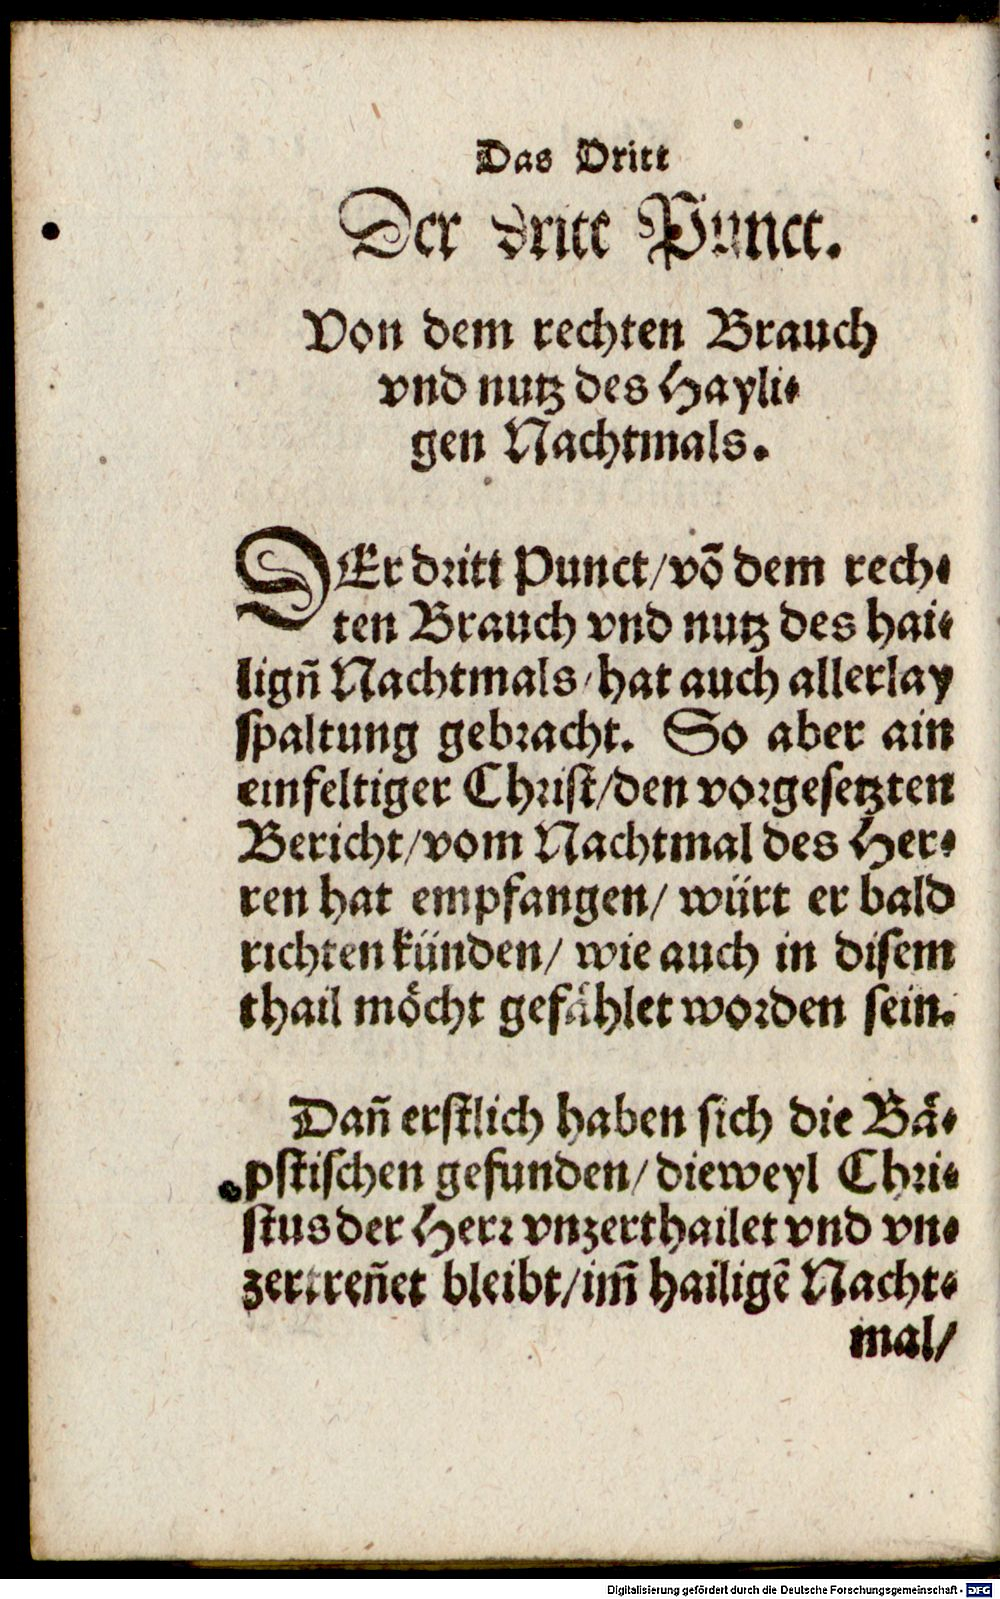 Das Dritt
Der dritt Punct.
Von dem rechten Brauch
vnd nutz des Hayli-
gen Nachtmals.
DEr dritt Punct/võ dem rech-
ten Brauch vnd nutz des hai-
ligñ Nachtmals/hat auch allerlay
spaltung gebracht. So aber ain
einfeltiger Christ/den vorgesetzten
Bericht/vom Nachtmal des Her-
ren hat empfangen/ würt er bald
richten künden/ wie auch in disem
thail möcht gefählet worden sein.
Dañ erstlich haben sich die Bä-
pstischen gefunden/dieweyl Chri-
stus der Herr vnzerthailet vnd vn-
zertreñet bleibt/im̃ hailigẽ Nacht-
mal/
Digitalisierung gefördert durch die Deutsche Forschungsgemeinschaft - DFG